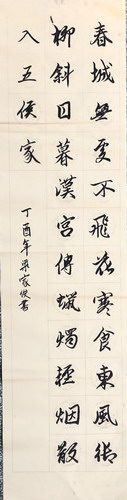 春城無處不飛花寒食東風御
柳斜日暮漢宮傳蠟燭輕烟散
入五侯家
丁酉年
家俊書